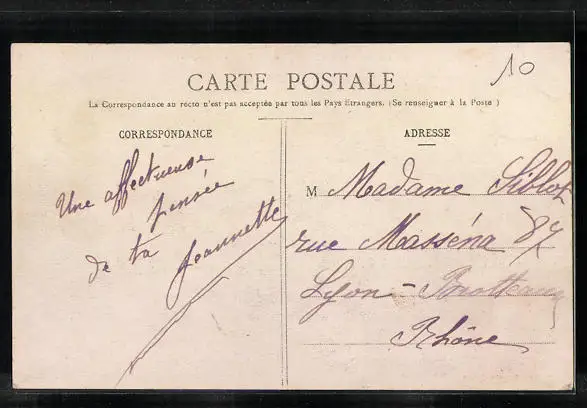 10
CARTE POSTALE
La Correspondance au recto n'est pas acceptée par tous les Pays Etrangers. (Se renseigner à la Poste)
CORRESPONDANCE
Une affectueuse
pensée
de ta Jeannette
ADRESSE
M Madame Siblot
rue Masséna 87
Lyon - Brotteaux
Rhône